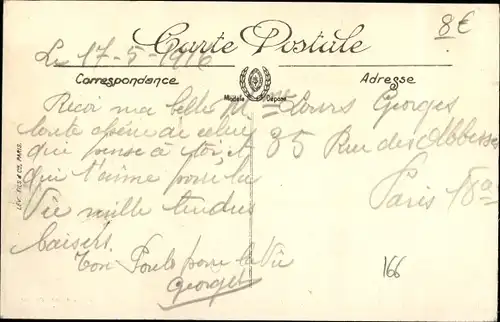 8€
Carte Postale
Le 17-5-1916
Correspondance
Adresse
Modèle Déposé
Reçoi ma belle
toute
de celui
qui pense à toi et
qui t'aime pour la
Vie mille tendres
baisers.
Ton Poulo pour la Vie
Georges
Louis Georges
35 Rue des Abbesses
Paris 18e
166
LÉVY FILS & CIE, PARIS